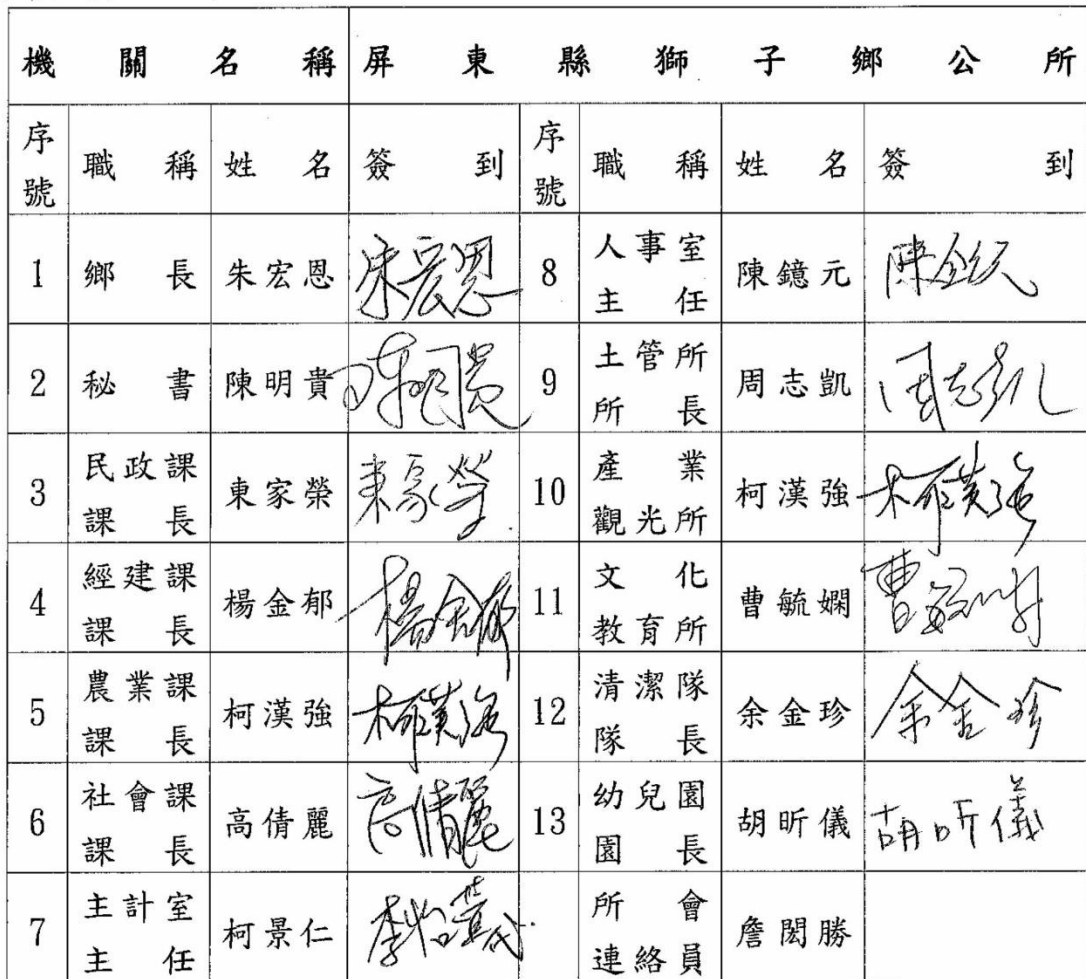 機關名稱 屏東縣獅子鄉公所
序號 職稱 姓名 簽到 序號 職稱 姓名 簽到
1 鄉長 朱宏恩 朱宏恩 8 人事室主任 陳鐿元 陳鐿元
2 秘書 陳明貴 陳明貴 9 土管所所長 周志凱 周志凱
3 民政課課長 東家榮 東家榮 10 產業觀光所 柯漢強 柯漢強
4 經建課課長 楊金郁 楊金郁 11 文化教育所 曹毓嫻 曹毓嫻
5 農業課課長 柯漢強 柯漢強 12 清潔隊隊長 余金珍 余金珍
6 社會課課長 高倩麗 高倩麗 13 幼兒園園長 胡昕儀 胡昕儀
7 主計室主任 柯景仁 李怡萱代 所會連絡員 詹閎勝